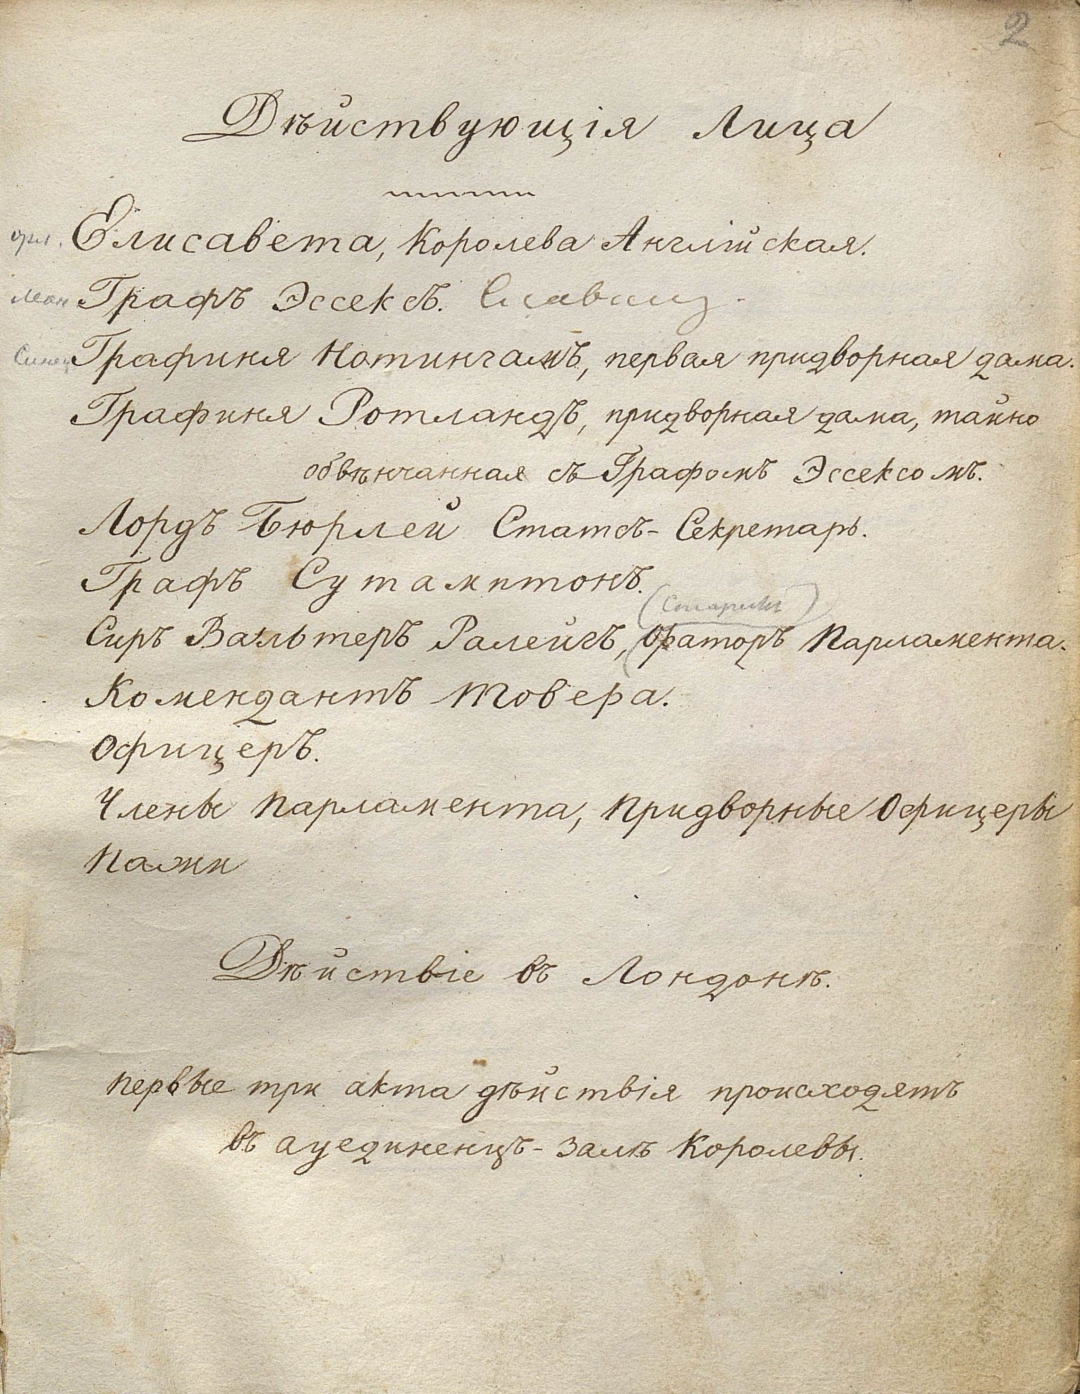 2
Дѣйствующія Лица
Елисавета, Королева Англійская.
Графъ Эссексъ.
Графиня Нотингамъ, первая придворная дама.
Графиня Ротландъ, придворная дама, тайно
обвѣнчанная съ Графомъ Эссексомъ.
Лордъ Бюрлей Статсъ-Секретарь.
Графъ Сутамптонъ.
Сиръ Вальтеръ Ралейгъ, Ораторъ Парламента.
Комендантъ Товера.
Офицеръ.
Члены Парламента, Придворные Офицеры
Пажи
Дѣйствіе въ Лондонѣ.
Первые три акта дѣйствія происходятъ
въ ауединенцъ-залѣ Королевы.